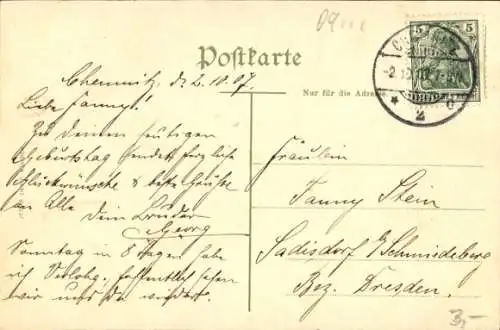 09
Postkarte
Nur für die Adresse.
5 5
2
3,-
Chemnitz, d. 2.10.07.
Liebe Fanny!
Zu Deinem heutigen
Geburtstag sendet herzliche
Glückwünsche & beste Grüße
an Alle Dein Bruder
Georg
Sonntag in 8 Tagen habe
ich Verlobg. hoffentlich sehen
wir uns da wieder.
Fräulein
Fanny Stein
Sadisdorf b/Schmiedeberg
Bez. Dresden.